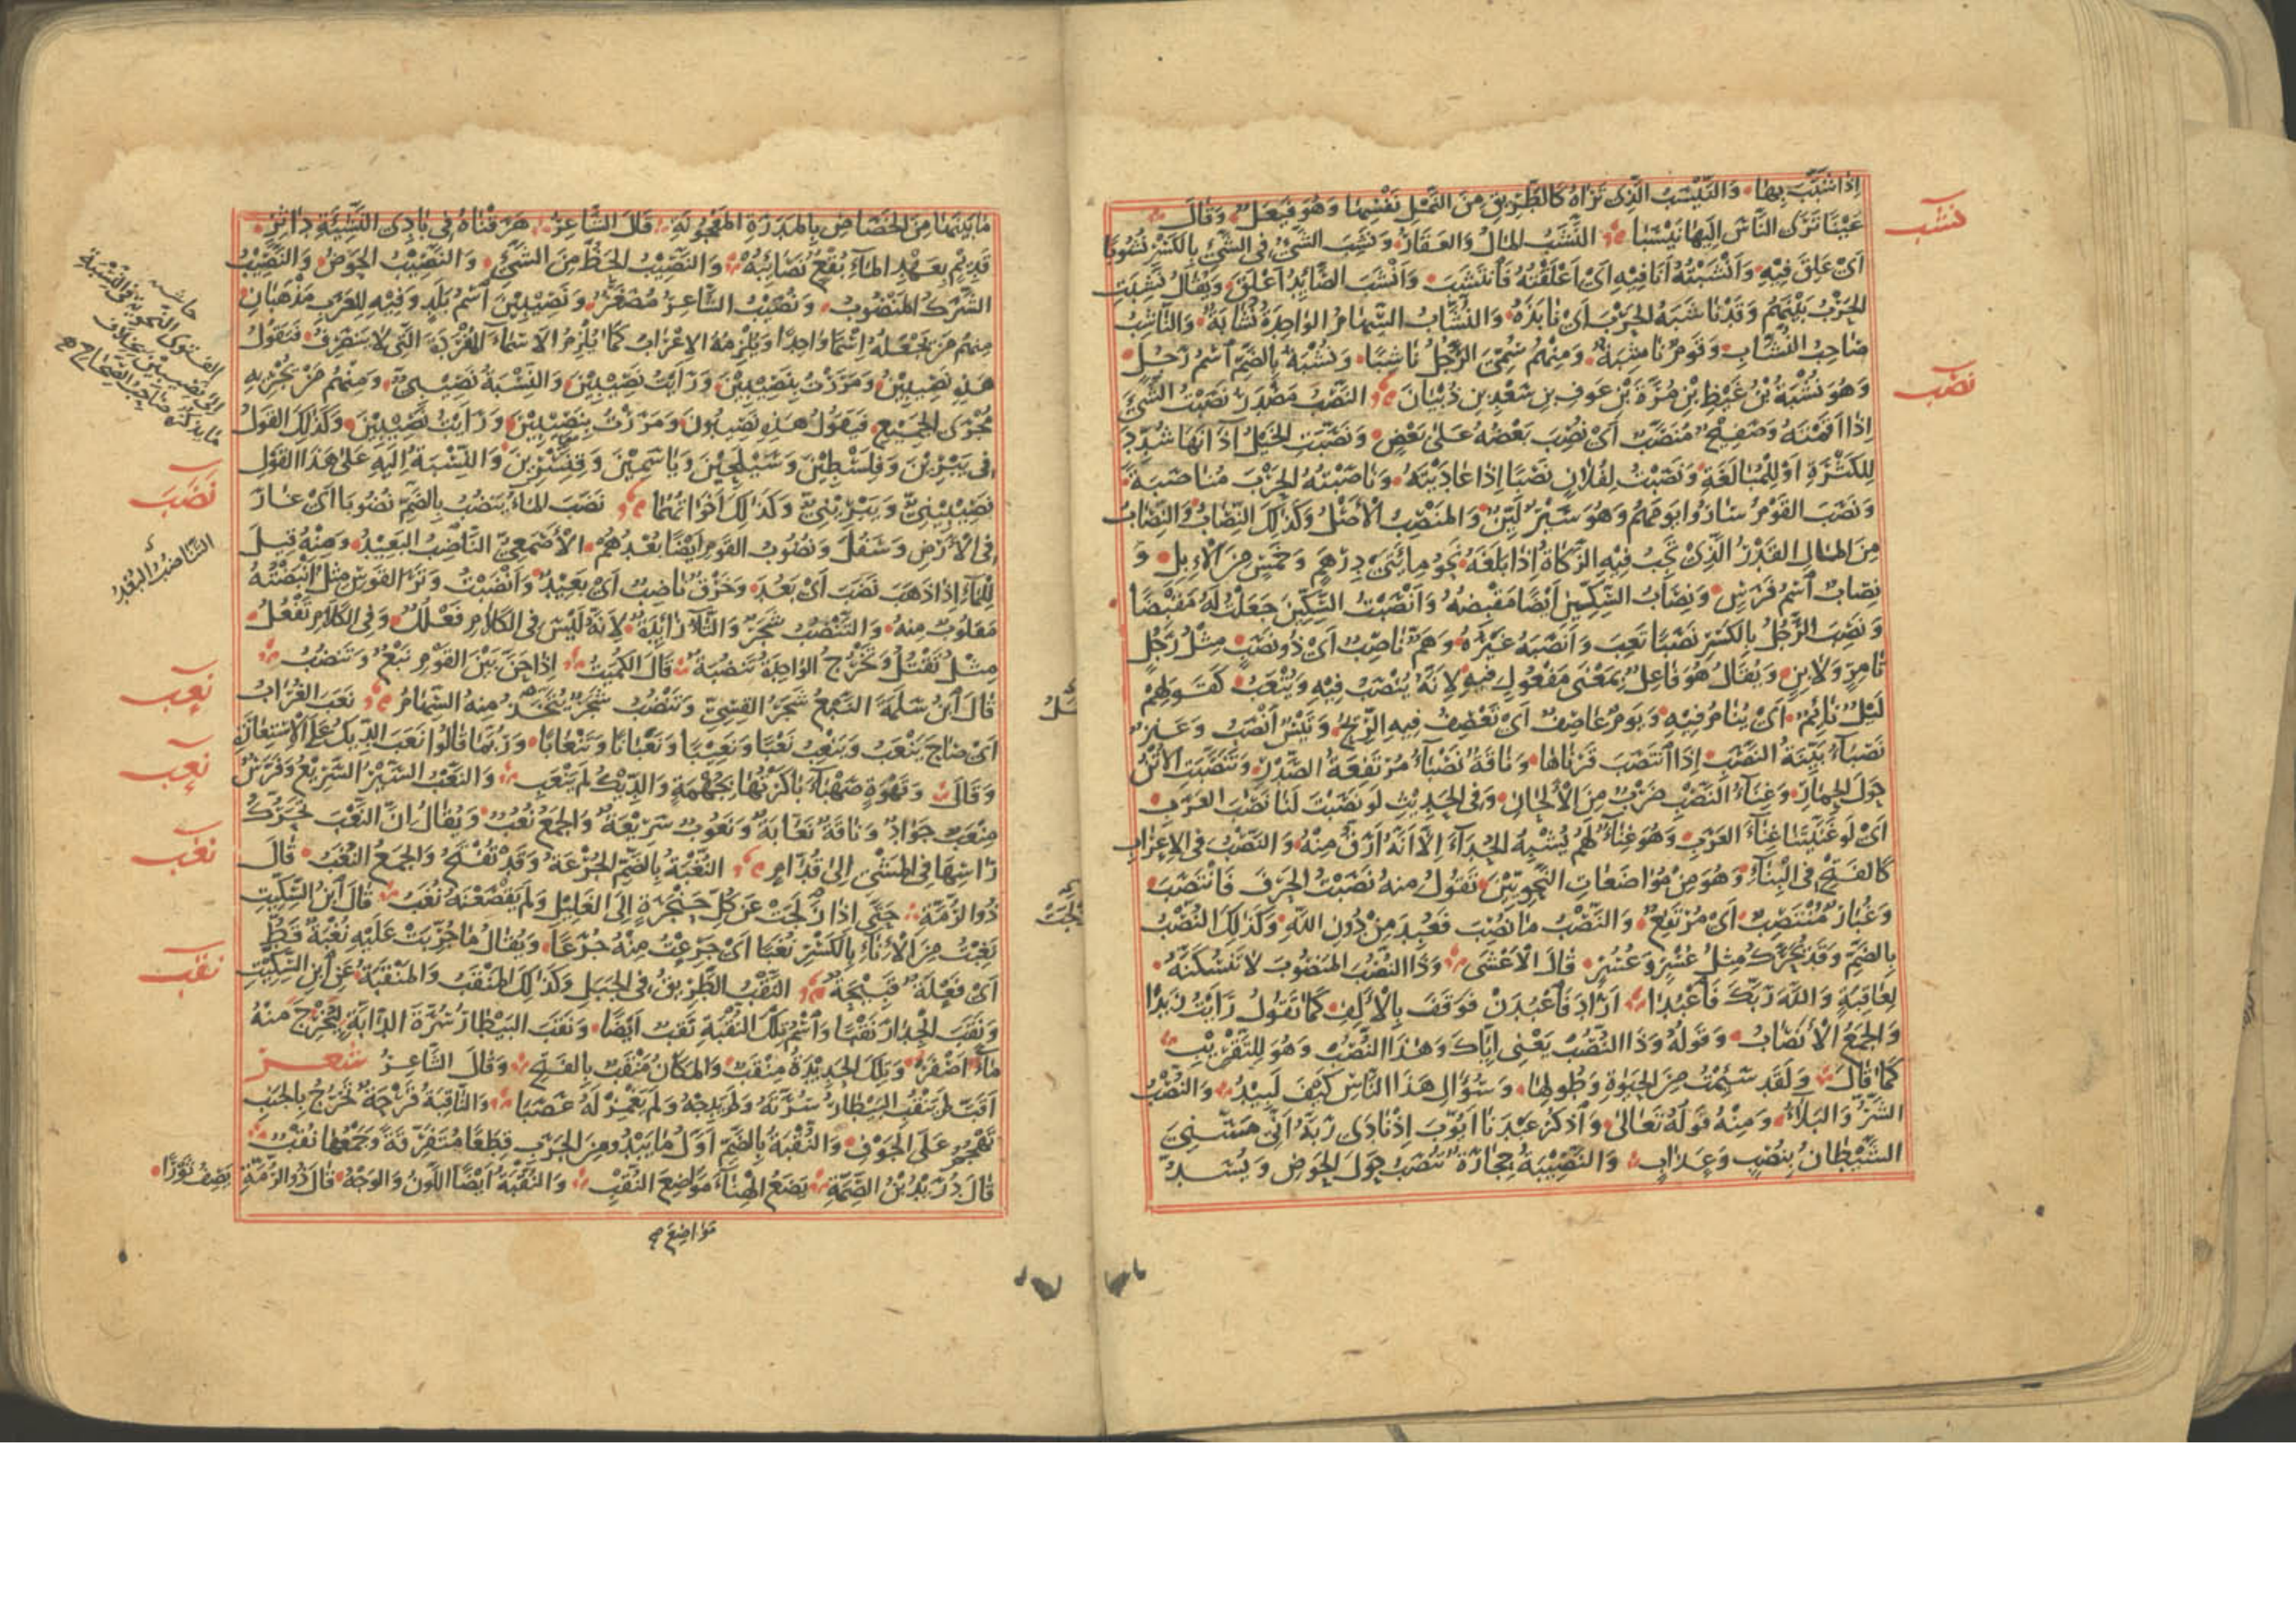 إِذَا شَبَّبَ بِهَا وَالنَّيْسَبُ الَّذِي تَرَاهُ كَالطَّرِيقِ مِنَ النَّمْلِ نَفْسِهَا وَهُوَ فَيْعَلٌ وَقَالَ
عَيْنًا تَرَى النَّاسَ إِلَيْهَا نَيْسَبَا النَّشَبُ الْمَالُ وَالْعَقَارُ وَنَشِبَ الشَّيْءُ فِي الشَّيْءِ بِالْكَسْرِ نُشُوبًا
نشب
أَيْ عَلِقَ فِيهِ وَأَنْشَبْتُهُ أَنَا فِيهِ أَيْ أَعْلَقْتُهُ فَانْتَشَبَ وَأَنْشَبَ الصَّائِدُ أَعْلَقَ وَيُقَالُ نَشِبَتِ
الْحَرْبُ بَيْنَهُمْ وَقَدْ نَاشَبَهُ الْحَرْبَ أَيْ نَابَذَهُ وَالنُّشَّابُ السِّهَامُ الْوَاحِدَةُ نُشَّابَةٌ وَالنَّاشِبُ
صَاحِبُ النُّشَّابِ وَقَوْمٌ نَاشِبَةٌ وَمِنْهُ سُمِّيَ الرَّجُلُ نَاشِبًا وَنُشْبَةُ بِالضَّمِّ اسْمُ رَجُلٍ
وَهُوَ نُشْبَةُ بْنُ غَيْظِ بْنِ مُرَّةَ بْنِ عَوْفِ بْنِ سَعْدِ بْنِ ذُبْيَانَ النَّصْبُ مَصْدَرُ نَصَبْتُ الشَّيْءَ
نصب
إِذَا أَقَمْتَهُ وَصَفِيحٌ مُنَصَّبٌ أَيْ نُصِبَ بَعْضُهُ عَلَى بَعْضٍ وَنَصَّبَتِ الْخَيْلُ آذَانَهَا شُدِّدَ
لِلْكَثْرَةِ أَوْ لِلْمُبَالَغَةِ وَنَصَبْتُ لِفُلَانٍ نَصْبًا إِذَا عَادَيْتَهُ وَنَاصَبْتُهُ الْحَرْبَ مُنَاصَبَةً
وَنَصَبَ الْقَوْمُ سَارُوا يَوْمَهُمْ وَهُوَ سَيْرٌ لَيِّنٌ وَالْمَنْصِبُ الْأَصْلُ وَكَذَلِكَ النِّصَابُ وَالنِّصَابُ
مِنَ الْمَالِ الْقَدْرُ الَّذِي تَجِبُ فِيهِ الزَّكَاةُ إِذَا بَلَغَهُ نَحْوُ مِائَتَيْ دِرْهَمٍ وَخَمْسٍ مِنَ الْإِبِلِ وَ
نِصَابٌ اسْمُ فَرَسٍ وَنِصَابُ السِّكِّينِ أَيْضًا مَقْبِضُهُ وَأَنْصَبْتُ السِّكِّينَ جَعَلْتُ لَهُ مَقْبِضًا
وَنَصِبَ الرَّجُلُ بِالْكَسْرِ نَصَبًا تَعِبَ وَأَنْصَبَهُ غَيْرُهُ وَهَمٌّ نَاصِبٌ أَيْ ذُو نَصَبٍ مِثْلُ رَجُلٍ
تَامِرٍ وَلَابِنٍ وَيُقَالُ هُوَ فَاعِلٌ بِمَعْنَى مَفْعُولٍ فِيهِ لِأَنَّهُ يُنْصَبُ فِيهِ وَيُتْعَبُ كَقَوْلِهِمْ
لَيْلٌ نَائِمٌ أَيْ يُنَامُ فِيهِ وَيَوْمٌ عَاصِفٌ أَيْ تَعْصِفُ فِيهِ الرِّيحُ وَتَيْسٌ أَنْصَبُ وَعَنْزٌ
نَصْبَاءُ بَيِّنَةُ النَّصَبِ إِذَا انْتَصَبَ قَرْنَاهَا وَنَاقَةٌ نَصْبَاءُ مُرْتَفِعَةُ الصَّدْرِ وَتَنَصَّبَتِ الْأُتُنُ
حَوْلَ الْحِمَارِ وَغِنَاءُ النَّصْبِ ضَرْبٌ مِنَ الْأَلْحَانِ وَفِي الْحَدِيثِ لَوْ نَصَبْتَ لَنَا نَصْبَ الْعَرَبِ
أَيْ لَوْ غَنَّيْتَنَا غِنَاءَ الْعَرَبِ وَهُوَ غِنَاءٌ لَهُمْ يُشْبِهُ الْحُدَاءَ إِلَّا أَنَّهُ أَرَقُّ مِنْهُ وَالنَّصْبُ فِي الْإِعْرَابِ
كَالْفَتْحِ فِي الْبِنَاءِ وَهُوَ مِنْ مُوَاضَعَاتِ النَّحْوِيِّينَ تَقُولُ مِنْهُ نَصَبْتُ الْحَرْفَ فَانْتَصَبَ
وَغُبَارٌ مُنْتَصِبٌ أَيْ مُرْتَفِعٌ وَالنَّصْبُ مَا نُصِبَ فَعُبِدَ مِنْ دُونِ اللَّهِ وَكَذَلِكَ النُّصْبُ
بِالضَّمِّ وَقَدْ يُحَرَّكُ مِثْلُ عُسْرٍ وَعُسُرٍ قَالَ الْأَعْشَى وَذَا النُّصُبَ الْمَنْصُوبَ لَا تَنْسُكَنَّهُ
لِعَاقِبَةٍ وَاللَّهَ رَبَّكَ فَاعْبُدَا أَرَادَ فَاعْبُدَنْ فَوَقَفَ بِالْأَلِفِ كَمَا تَقُولُ رَأَيْتُ زَيْدًا
وَالْجَمْعُ الْأَنْصَابُ وَقَوْلُهُ وَذَا النُّصُبَ يَعْنِي إِيَّاكَ وَهَذَا النُّصُبَ وَهُوَ لِلتَّقْرِيبِ
كَمَا قَالَ وَلَقَدْ سَئِمْتُ مِنَ الْحَيَوةِ وَطُولِهَا وَسُؤَالِ هَذَا النَّاسِ كَيْفَ لَبِيدُ وَالنُّصْبُ
الشَّرُّ وَالْبَلَاءُ وَمِنْهُ قَوْلُهُ تَعَالَى وَاذْكُرْ عَبْدَنَا أَيُّوبَ إِذْ نَادَى رَبَّهُ أَنِّي مَسَّنِيَ
الشَّيْطَانُ بِنُصْبٍ وَعَذَابٍ وَالنَّصِيبَةُ حِجَارَةٌ تُنْصَبُ حَوْلَ الْحَوْضِ وَيُسَدُّ
مَا بَيْنَهَا مِنَ الْخَصَاصِ بِالْمَدَرَةِ الْمَعْجُونَةِ قَالَ الشَّاعِرُ هَرَقْنَاهُ فِي بَادِي النَّشِيئَةِ دَاثِرٍ
قَدِيمٍ بِعَهْدِ الْمَاءِ بُقْعٍ نَصَائِبُهْ وَالنَّصِيبُ الْحَظُّ مِنَ الشَّيْءِ وَالنَّصِيبُ الْحَوْضُ وَالنَّصِيبُ
الشَّرَكُ الْمَنْصُوبُ وَنُصَيْبٌ الشَّاعِرُ مُصَغَّرٌ وَنَصِيبِينَ اسْمُ بَلَدٍ وَفِيهِ لِلْعَرَبِ مَذْهَبَانِ
مِنْهُمْ مَنْ يَجْعَلُهُ اسْمًا وَاحِدًا وَيُلْزِمُهُ الْإِعْرَابَ كَمَا يُلْزِمُ الْأَسْمَاءَ الْمُفْرَدَةَ الَّتِي لَا يَنْصَرِفُ فَيَقُولُ
هَذِهِ نَصِيبِينُ وَمَرَرْتُ بِنَصِيبِينَ وَرَأَيْتُ نَصِيبِينَ وَالنِّسْبَةُ نَصِيبِيٌّ وَمِنْهُمْ مَنْ يُجْرِيهِ
مُجْرَى الْجَمِيعِ فَيَقُولُ هَذِهِ نَصِيبُونَ وَمَرَرْتُ بِنَصِيبِينَ وَرَأَيْتُ نَصِيبِينَ وَكَذَلِكَ الْقَوْلُ
فِي يَبْرِينَ وَفِلَسْطِينَ وَسَيْلَحِينَ وَيَاسَمِينَ وَقِنَّسْرِينَ وَالنِّسْبَةُ إِلَيْهِ عَلَى هَذَا الْقَوْلِ
نَصِيبِينِيٌّ وَيَبْرِينِيٌّ وَكَذَلِكَ أَخَوَاتُهُمَا نَضَبَ الْمَاءُ يَنْضُبُ بِالضَّمِّ نُضُوبًا أَيْ غَارَ
نَضَبَ
فِي الْأَرْضِ وَسَفَلَ وَنُضُوبُ الْقَوْمِ أَيْضًا بُعْدُهُمْ الْأَصْمَعِيُّ النَّاضِبُ الْبَعِيدُ وَمِنْهُ قِيلَ
لِلْمَاءِ إِذَا ذَهَبَ نَضَبَ أَيْ بَعُدَ وَخَرْقٌ نَاضِبٌ أَيْ بَعِيدٌ وَأَنْضَبْتُ وَتَرَ الْقَوْسِ مِثْلُ أَنْبَضْتُهُ
مَقْلُوبٌ مِنْهُ وَالتَّنْضُبُ شَجَرٌ وَالتَّاءُ زَائِدَةٌ لِأَنَّهُ لَيْسَ فِي الْكَلَامِ فَعْلُلٌ وَفِي الْكَلَامِ تَفْعُلُ
مِثْلُ تَقْتُلُ وَتَخْرُجُ الْوَاحِدَةُ تَنْضُبَةٌ قَالَ الْكُمَيْتُ إِذَا حَنَّ بَيْنَ الْقَوْمِ نَبْعٌ وَتَنْضُبُ
قَالَ ابْنُ سَلَمَةَ النَّبْعُ شَجَرُ الْقِسِيِّ وَتَنْضُبُ شَجَرٌ يُتَّخَذُ مِنْهُ السِّهَامُ نَعَبَ الْغُرَابُ
نعب
أَيْ صَاحَ يَنْعَبُ وَيَنْعِبُ نَعْبًا وَنَعِيبًا وَنَعَبَانًا وَتَنْعَابًا وَرُبَّمَا قَالُوا نَعَبَ الدِّيكُ عَلَى الْاِسْتِعَارَةِ
وَقَالَ وَقَهْوَةٍ صَهْبَاءَ بَاكَرْتُهَا بِجُهْمَةٍ وَالدِّيكُ لَمْ يَنْعَبِ وَالنَّعْبُ السَّيْرُ السَّرِيعُ وَفَرَسٌ
نعب
مِنْعَبٌ جَوَادٌ وَنَاقَةٌ نَعَّابَةٌ وَنَعُوبٌ سَرِيعَةٌ وَالْجَمْعُ نُعُبٌ وَيُقَالُ إِنَّ النَّعْبَ تَحَرُّكُ
رَأْسِهَا فِي الْمَشْيِ إِلَى قُدَّامٍ النُّغْبَةُ بِالضَّمِّ الْجُرْعَةُ وَقَدْ تُفْتَحُ وَالْجَمْعُ النُّغَبُ قَالَ
نغب
ذُو الرُّمَّةِ حَتَّى إِذَا زَلَجَتْ عَنْ كُلِّ حَنْجَرَةٍ إِلَى الْغَلِيلِ وَلَمْ يَقْصَعْنَهُ نُغَبُ قَالَ ابْنُ السِّكِّيتِ
نَغِبْتُ مِنَ الْإِنَاءِ بِالْكَسْرِ نَغْبًا أَيْ جَرِعْتُ مِنْهُ جُرَعًا وَيُقَالُ مَا جُرِّبَتْ عَلَيْهِ نُغْبَةٌ قَطُّ
أَيْ فَعْلَةٌ قَبِيحَةٌ النَّقْبُ الطَّرِيقُ فِي الْجَبَلِ وَكَذَلِكَ الْمَنْقَبُ وَالْمَنْقَبَةُ عَنِ ابْنِ السِّكِّيتِ
نقب
وَنَقَبَ الْجِدَارَ نَقْبًا وَاسْمُ تِلْكَ النَّقْبَةِ نَقْبٌ أَيْضًا وَنَقَبَ الْبَيْطَارُ سُرَّةَ الدَّابَّةِ لِيُخْرِجَ مِنْهُ
مَاءً أَصْفَرَ وَتِلْكَ الْحَدِيدَةُ مِنْقَبٌ وَالْمَكَانُ مَنْقَبٌ بِالْفَتْحِ وَقَالَ الشَّاعِرُ شعر
أَقَبَّ لَمْ يَنْقُبِ الْبَيْطَارُ سُرَّتَهُ وَلَمْ يَدِجْهُ وَلَمْ يَغْمِزْ لَهُ عَصَبَا وَالنَّاقِبَةُ قَرْحَةٌ تَخْرُجُ بِالْجَنْبِ
تَهْجُمُ عَلَى الْجَوْفِ وَالنُّقْبَةُ بِالضَّمِّ أَوَّلُ مَا يَبْدُو مِنَ الْجَرَبِ قِطَعًا مُتَفَرِّقَةً وَجَمْعُهَا نُقْبٌ
قَالَ دُرَيْدُ بْنُ الصِّمَّةِ يَضَعُ الْهِنَاءَ مَوَاضِعَ النُّقْبِ وَالنُّقْبَةُ أَيْضًا اللَّوْنُ وَالْوَجْهُ قَالَ ذُو الرُّمَّةِ يَصِفُ ثَوْرًا
مواضع
التَّنَاضُبُ الْبُعْدُ